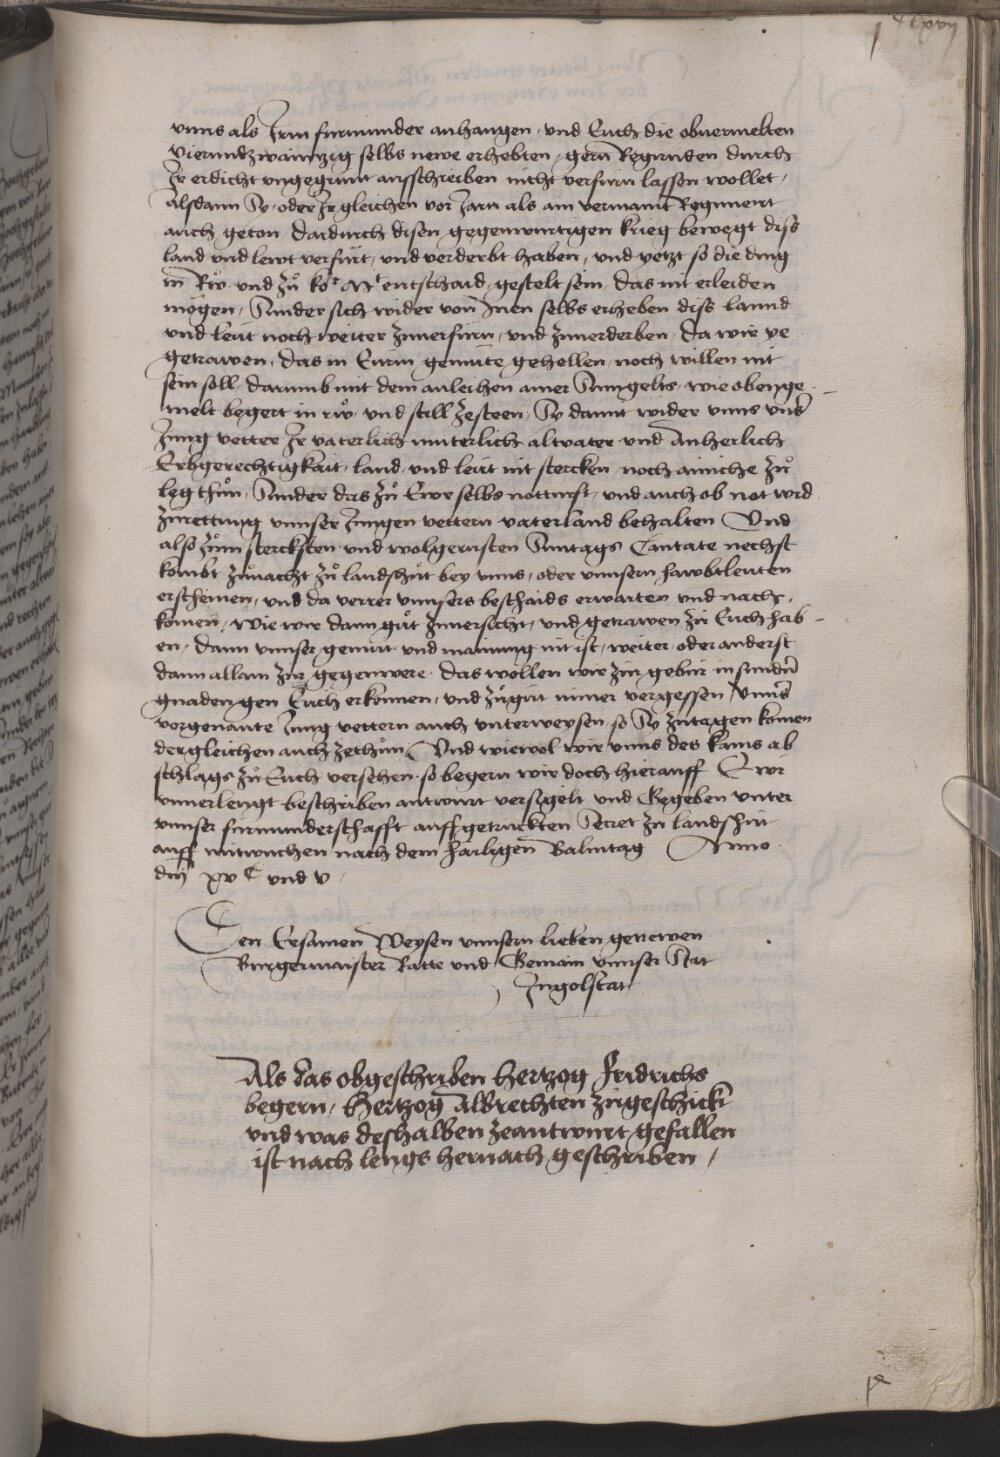 vnns als Irm furmunder anhangen, vnd Euch die obuermelten
vierundzwaintzig selbs newe erhebten, gern Regirnden durch
Ir erdicht vngegrunt ausschreiben nicht verfurn lassen wollet,
alsdann Sy, oder Ir gleichen vor Jarn als am vermaint Regiment
auch geton, dardurch disen gegenwurtigen krieg bewegt diss
land vnd lewt verfurt, vnd verderbt haben, vnd yetzt so die ding
in Rŵ vnd zů koͬ Mͭ entschaid, gestelt sein, das nit erleiden
mögen, Sunder sich wider von Inen selbs erheben diss lannd
vnd leut noch weiter zuuerfurn, vnd zuuerderben, da wir ye
getrawen, das in Eurm gemute gehellen noch willen nit
sein soll, darumb mit dem anleihen ainer Sumgelts, wie obenge
melt begert in rŵ, vnd still zesteen, Sy damit wider vnns vnsͬ
Jung vetter Ir vaterlich muterlich altvater vnd anherlich
Erbgerechtigkait, land, vnd leut nit stercken noch ainiche zů
leg thun, Sunder das zů Ewr selbs notturft, vnd auch ob not wird
zurettung vnnser Jungen vettern vaterland behalten Vnd
also zum sterckhsten vnd wolgerusten Suntags Cantate nechst
kombt zunacht zů landshut bey vnns, oder vnnsern hawbtleuten
erscheinen, vnd da verrer vnnsers beschaids erwarten vnd nach,
komen, wie wir dann gut zuuersicht, vnd getrawen zu Euch hab
en, dann vnnser gemut vnd mainung nit ist, weiter, oder anderst
dann allain zur gegenwere, das wollen wir zur gebur in sundern
gnaden gen Euch erkennen, vnd zugut nimer vergessen Vnns
vorgenante Jung vettern auch vnterweysen, so Sy zutagen komen
dergleichen auch zethun, Vnd wiewol wir vnns des kains ab
schlags zu Euch versehen, so begern wir doch hierauff Ewr
vnuerlengt beschriben antwurt versigelt vnd Gegeben vnter
vnnser furmunderschafft auffgetruckten Secret zu landshut
auff mitwuchen nach dem hailigen Balmtag Anno
dni xv C vnd v,
Den Ersamen Weysen vnnsern lieben getrewen
Burgermaister Ratte vnd Gemain vnnser Stat
Ingolstat
Als das obgeschriben Hertzog Fridrichs
begern, Hertzog Albrechten zugeschickt
vnd was deshalben zeantwurt gefallen
ist nach lengs hernach geschriben,